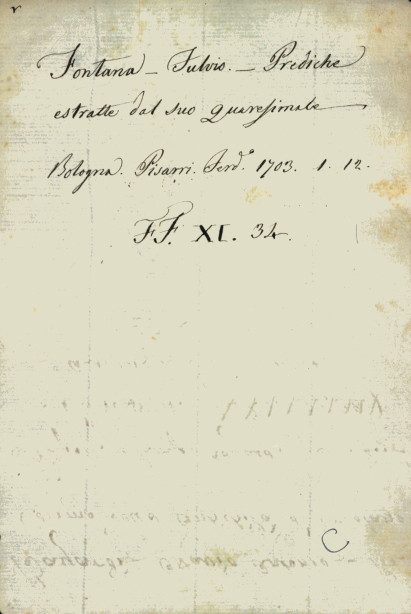 Fontana – Fulvio. – Prediche
estratte dal suo quaresimale
Bologna. Pisarri. Ferd.º 1703. 1. 12.
FF. XI. 34.
C